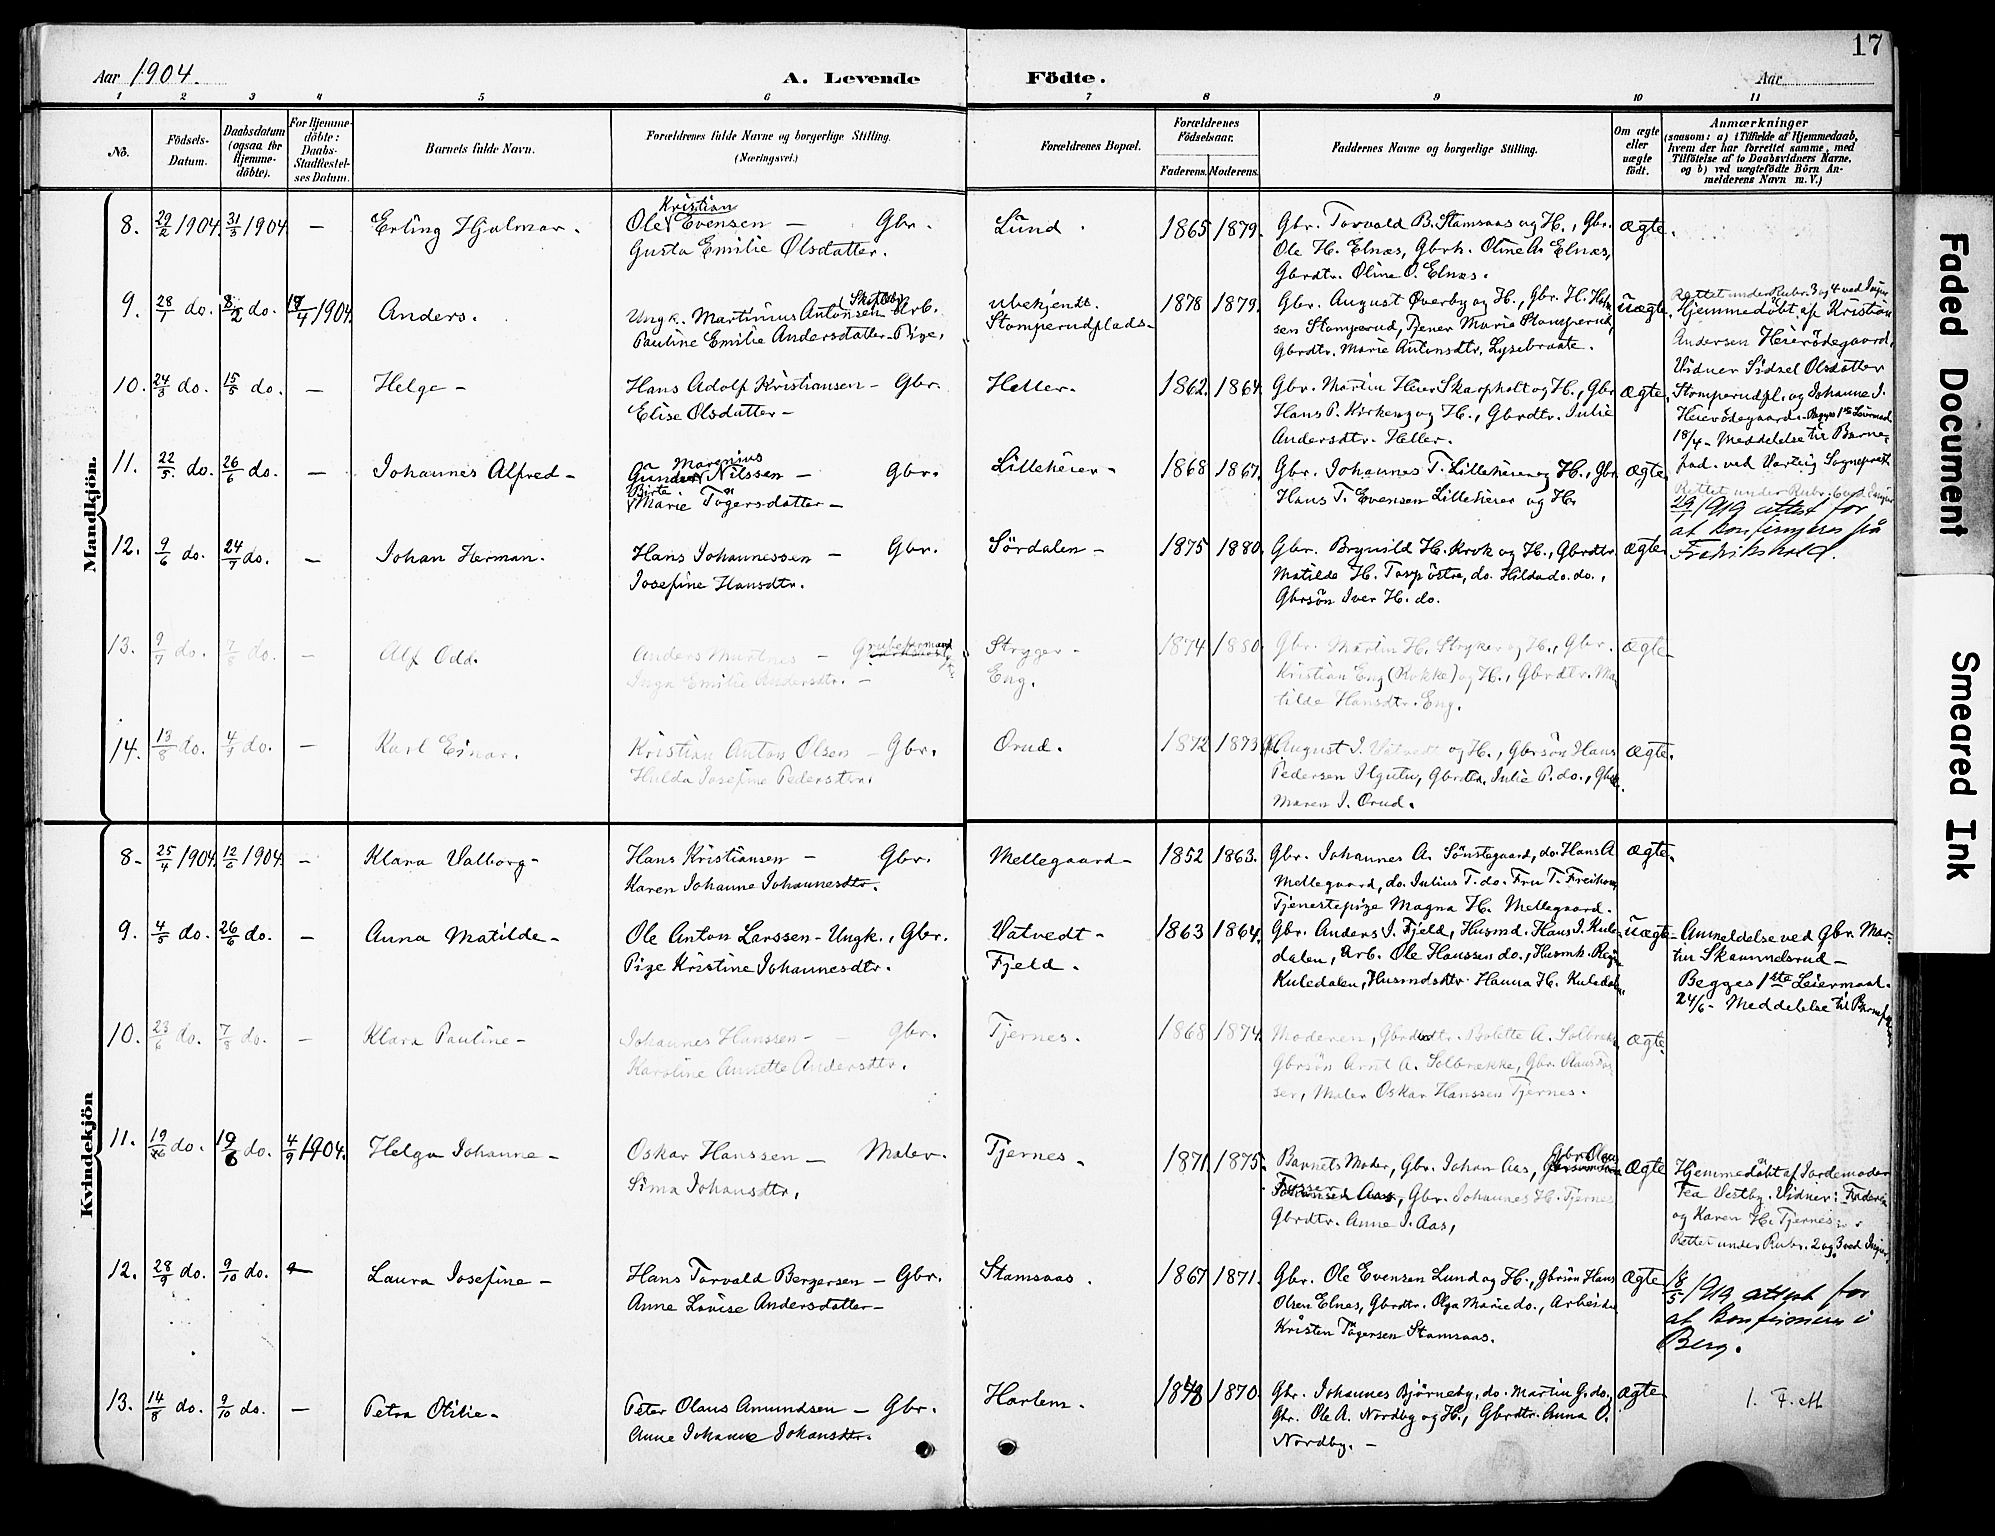 17
Aar 1904.
A. Levende Födte.
Aar
1 2 3 4 5 6 7 8 9 10 11
No.
Födsels-Datum.
Daabsdatum (ogsaa for Hjemme-döbte).
For Hjemme-döbte: Daabs-Stadfæstel-ses Datum.
Barnets fulde Navn.
Forældrenes fulde Navne og borgerlige Stilling. (Næringsvei.)
Forældrenes Bopæl.
Forældrenes Födselsaar.
Faderens. Moderens.
Faddernes Navne og borgerlige Stilling.
Om ægte eller uægte födt.
Anmærkninger
(saasom: a) i Tilfælde af Hjemmedaab,
hvem der har forrettet samme, med
Tilföielse af to Daabsvidners Navne,
og b) ved uægtefödte Börn An-
melderens Navn m. V.)
Mandkjön.
8. 29/2 1904 31/3 1904 — Erling Hjalmar. Ole Kristian Evensen — Gbr. Lund. 1865 1879. Gbr. Torvald B. Stamsaas og H., Gbr. ægte.
Gusta Emilie Olsdatter. Ole H. Elnæs, Gbrk. Oline A. Elnæs,
Gbrdtr. Oline O. Elnæs.
9. 28/1 do. 8/2 do. 1904. Anders. Ungk. Martinius Antonsen Arb. Ubekjendt. 1878 1879. Gbr. August Överby og H., Gbr. H. Han- uægte. Rettet under Rubr. 3 og 4 ved
Pauline Emilie Andersdatter - Pige. Stomperudplads. sen Stomperud, Tjener Marie Stomperud, Hjemmedöbt af Kristian
Gbrdtr. Marie Antonsdtr. Lysebraate. Andersen Heierödegaard,
Vidner Sidsel Olsdatter
10. 24/3 do. 15/5 do. — Helge - Hans Adolf Kristiansen - Gbr. Heller. 1862. 1864. Gbr. Martin Heier Skarpholt og H., Gbr. ægte. Stomperudpl. og Johanne J.
Elise Olsdatter - Hans P. Kirkeng og H., Gbrdtr. Julie Heierödegaard. Begges 1ste Leiermaal
Andersdtr. Heller. 18/4 - Meddelelse til Barne-
11. 22/5. do. 26/6 do. — Johannes Alfred - Gunder Marenius Nilssen — Gbr. Lilleheier - 1868 1867. Gbr. Johannes T. Lilleheier og H., Gbr. ægte. fad. ved Varteig Sogneprest
Birte Marie Tögersdatter - Hans T. Evensen Lilleheier og H. Rettet under Rubr. 6 ved
29/7 1919 attest for
12. 9/6 do. 24/7 do. — Johan Herman. Hans Johannessen — Gbr. Sördalen - 1875 1880. Gbr. Brynild H. Krok og H., Gbrdtr. ægte. at konfirmeres på
Josefine Hansdtr. Matilde H. Torp östre, do. Hilda do. do., Fredrikshald.
Gbrsön Iver H. do.
13. 9/7 do. 7/8 do. — Alf Odd. Anders Martnes — Stryger - 1874 1880. Gbr. Martin H. Stryker og H., Gbr. ægte
Inga Emilie Andersdtr. — Eng. Kristian Eng (Rokke) og H., Gbrdtr. Ma-
tilde Hansdtr. Eng.
14. 13/8 do. 4/9 do. — Karl Einar. Kristian Anton Olsen - Gbr. Orud. 1872 1873. August J. Vatvedt og H., Gbrsön Hans ægte.
Hulda Josefine Pedersdtr. Pedersen, Gbrdtr. Julie P. do.,
Maren J. Orud.
Kvindekjön
8 - 25/4 1904. 12/6 1904 — Klara Valborg - Hans Kristiansen — Gbr. Mellegaard - 1852 1863. Gbr. Johannes A. Sönstegaard, do. Hans A ægte.
Karen Johanne Johannesdtr. Mellegaard, do. Julius T. do. Fru T. Freiholm,
Tjenestepige Magna H. Mellegaard.
9. 4/5 do. 26/6 do. — Anna Matilde - Ole Anton Larssen - Ungk., Gbr. Vatvedt - 1863 1864. Gbr. Anders J. Fjeld, Husmd. Hans J. Kule- uægte - Anmeldelse ved Gbr. Mar-
Pige Kristine Johannesdtr. Fjeld. dalen, Arb. Ole Hanssen do., Husmk. tin Skammelsrud -
Kuledalen, Husmdsdtr. Hanna H. Kuledalen. Begges 1ste Leiermaal.
24/6 - Meddelelse til Barnefaderen
10. 23/6 do. 7/8 do. — Klara Pauline - Johannes Hanssen - Gbr. Tjernes. 1868 1874. Moderen, Bolette A. Solbrekke ægte.
Karoline Annette Andersdtr. Gbrsön Arnt A. Solbrække, Gbr. Olaus Fos-
ser, Maler Oskar Hanssen Tjernes.
11. 19/6 do. 19/6 do. 4/9 1904. Helga Johanne - Oskar Hanssen — Maler. Tjernes - 1871 1875. Barnets Moder, Gbr. Johan Aas, Gbr. Olaus ægte Hjemmedöbt af Jordemoder
Sima Johansdtr. Fosser, Gbr. Johannes H. Tjernes Tea Vestby. Vidner: Faderen
Gbrdtr. Anne J. Aas, og Karen H. Tjernes.
Rettet under Rubr. 2 og 3 ved
12. 28/9 do. 9/10 do. — Laura Josefine - Hans Torvald Bergersen — Gbr. Stamsaas. 1867 1871. Gbr. Ole Evensen Lund og H., Gbrsön Hans ægte 18/5 1919 attest for
Anne Lovise Andersdatter - Olsen Elnæs, Gbrdtr. Olga Marie do., Arbeider at konfirmeres i
Kristen Tögersen Stamsaas. Berg.
13. 14/8 do. 9/10 do. — Petra Otilie - Peter Olaus Amundsen — Gbr. Harlem. 1870. Gbr. Johannes Björneby, do. Martin G. do., ægte 1. F. M
Anne Johanne Johansdtr. Gbr. Ole A. Nordby og H., Gbrdtr. Anna O.
Nordby. —
Faded Document
Smeared Ink